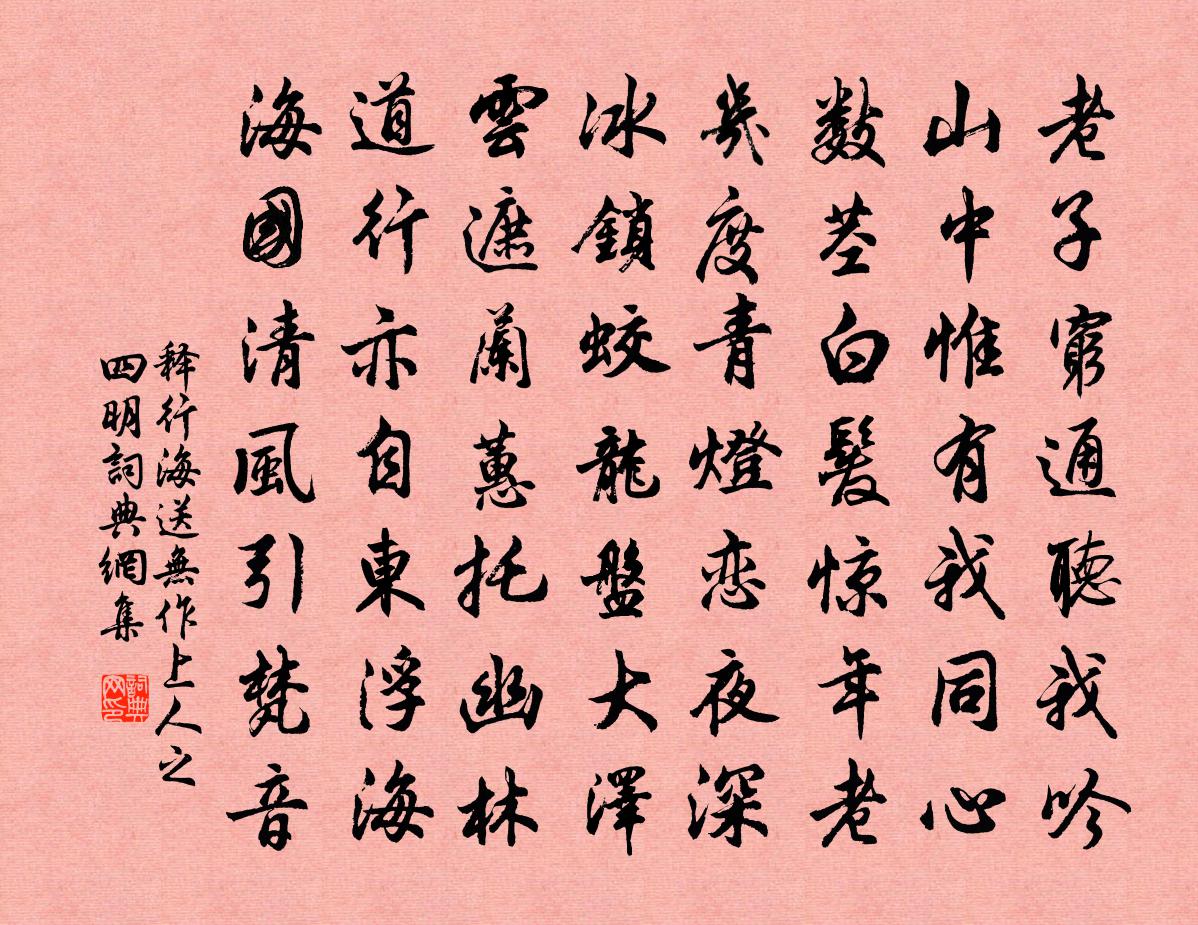 老子窮通聽我吟
山中惟有我同心
數莖白髮惊年老
幾度青燈恋夜深
冰鎖蛟龍盤大澤
雲遮蘭蕙托幽林
道行亦自東浮海
海國清風引梵音
释行海送無作上人之
四明詞典網集
詞典
网印